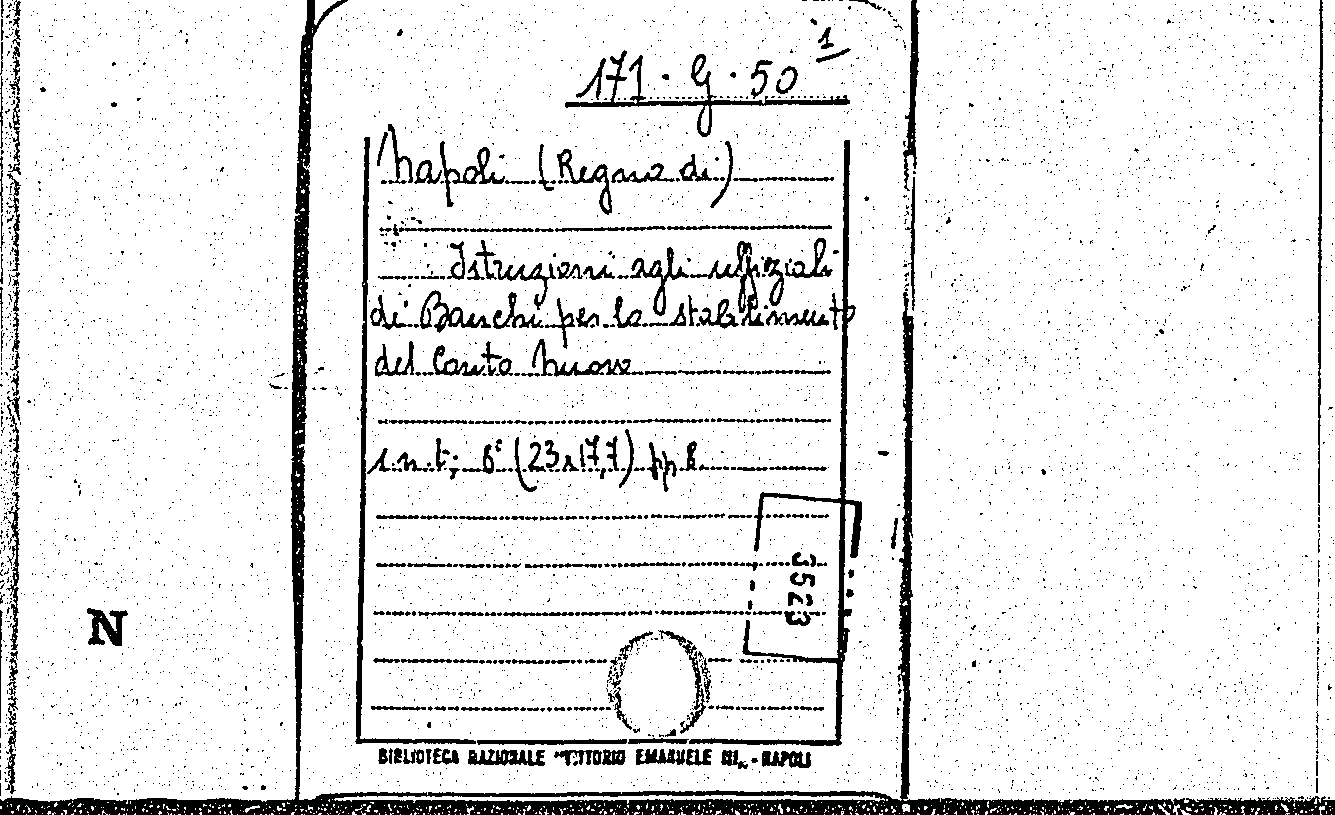 171 . G . 50 1
Napoli (Regno di)
Istruzioni agli uffiziali
di Banchi per lo stabilimento
del Conto Nuovo
s.n.t; 8° (23x17,7) pp 8.
3523
N
BIBLIOTECA NAZIONALE "VITTORIO EMANUELE III" - NAPOLI